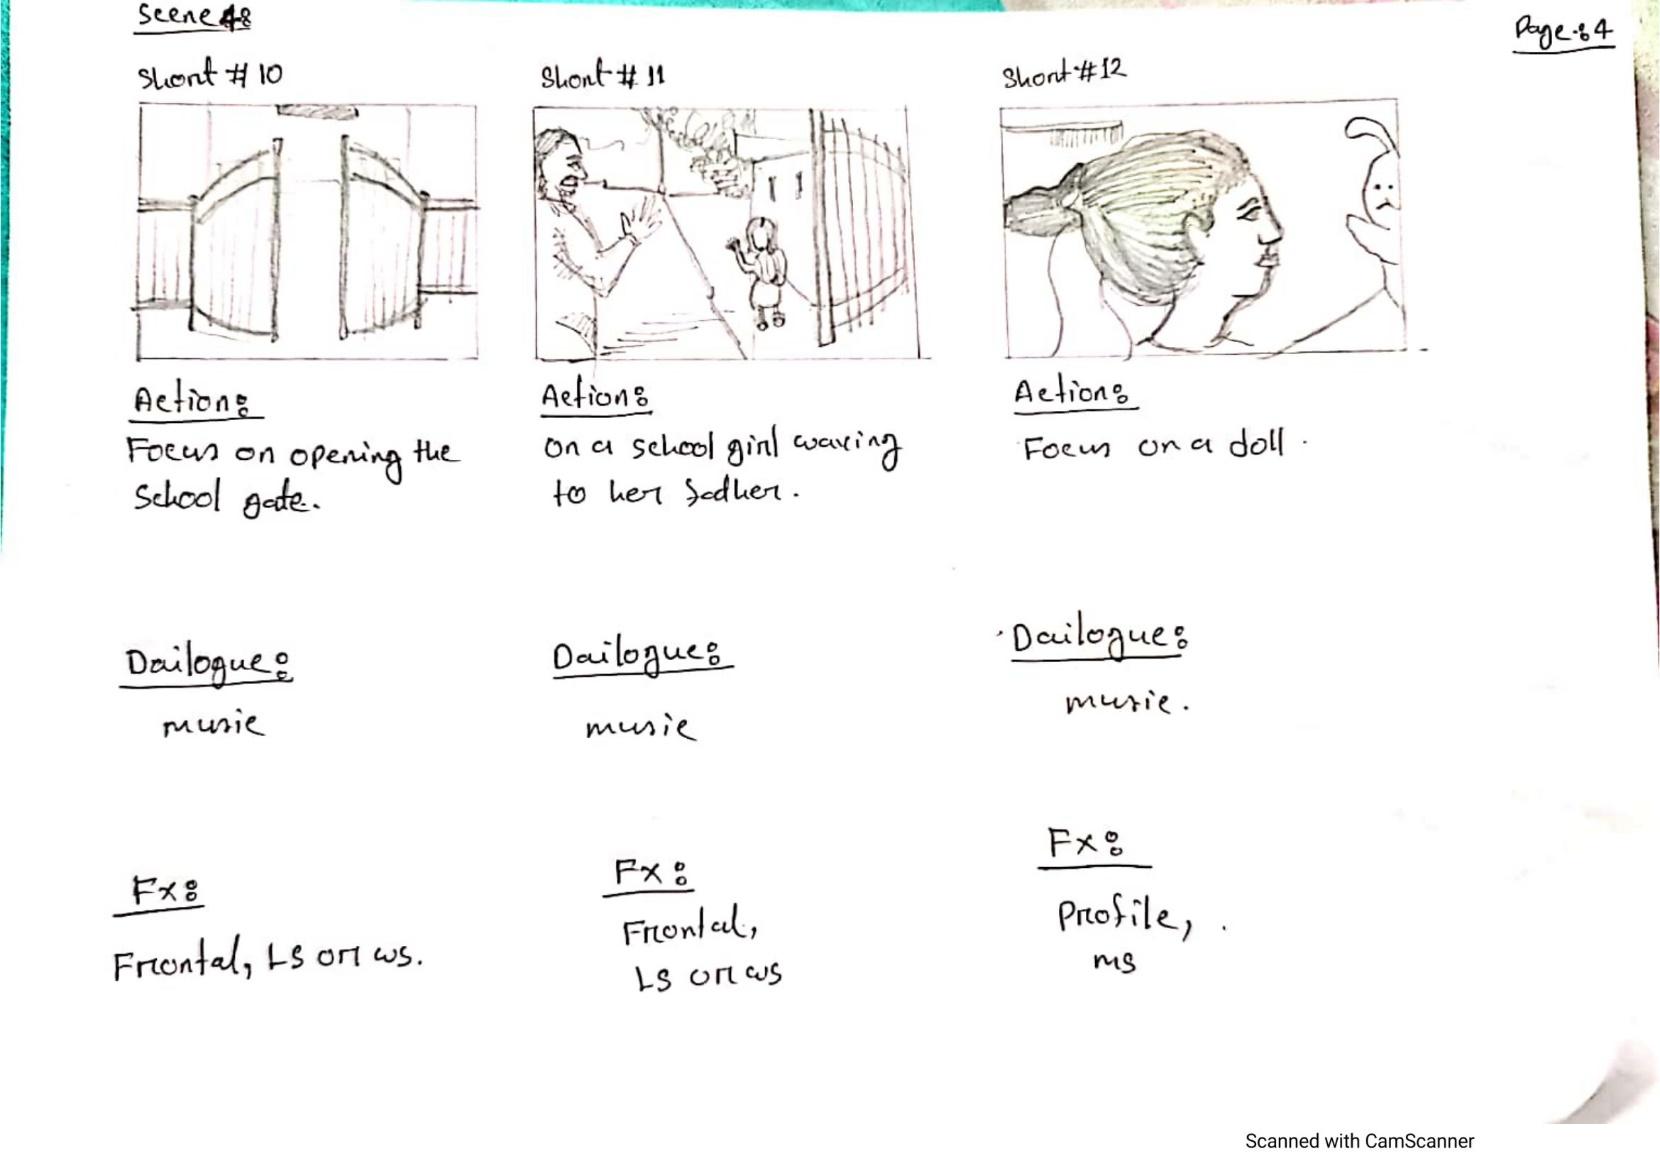 Scene 48
Page:4
Short # 10
Short # 11
Short #12
Action:
Focus on opening the
School gate.
Action:
on a school girl waving
to her fadher.
Action:
Focus on a doll.
Dailogue:
music
Dailogue:
music
Dailogue:
music.
Fx:
Frontal, LS or ws.
Fx:
Frontal,
LS or ws
Fx:
Profile,
ms
Scanned with CamScanner